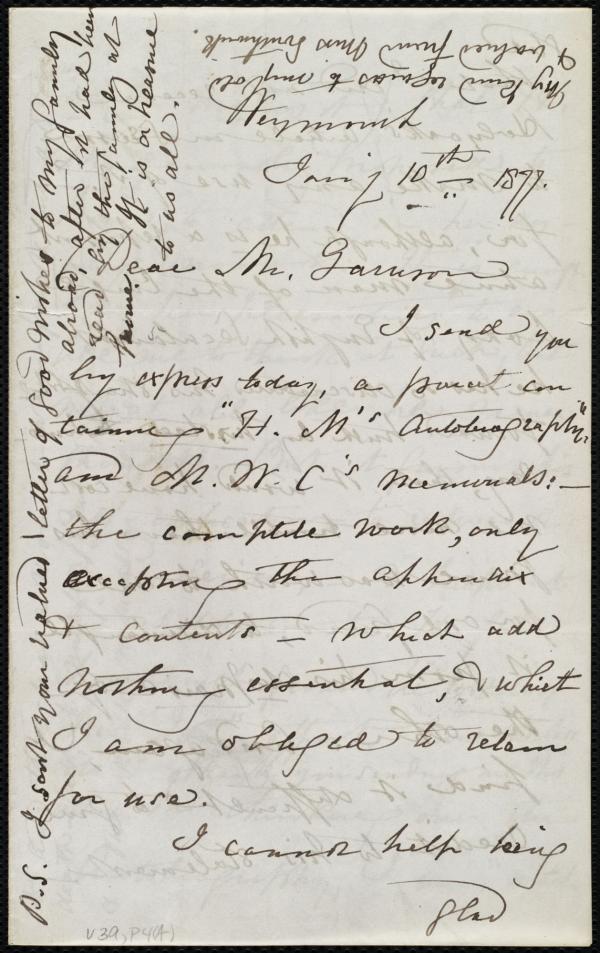 Weymouth
Jan'y 10th 1877.
Dear Mr. Garrison
I send you
by express today, a parcel con
taining "H. M's Autobiography",
and M. W. C's Memorials:—
the complete work, only
excepting the appendix
& contents — which add
nothing essential, & which
I am obliged to retain
for use.
I cannot help being
glad
P.S. I sent your valued letter of good wishes to my family
abroad, after it had been
read by the family at
home. It is a heroine
to us all.
My kind regards to my old
& valued friend Miss Southwick.
V39, P4(A)